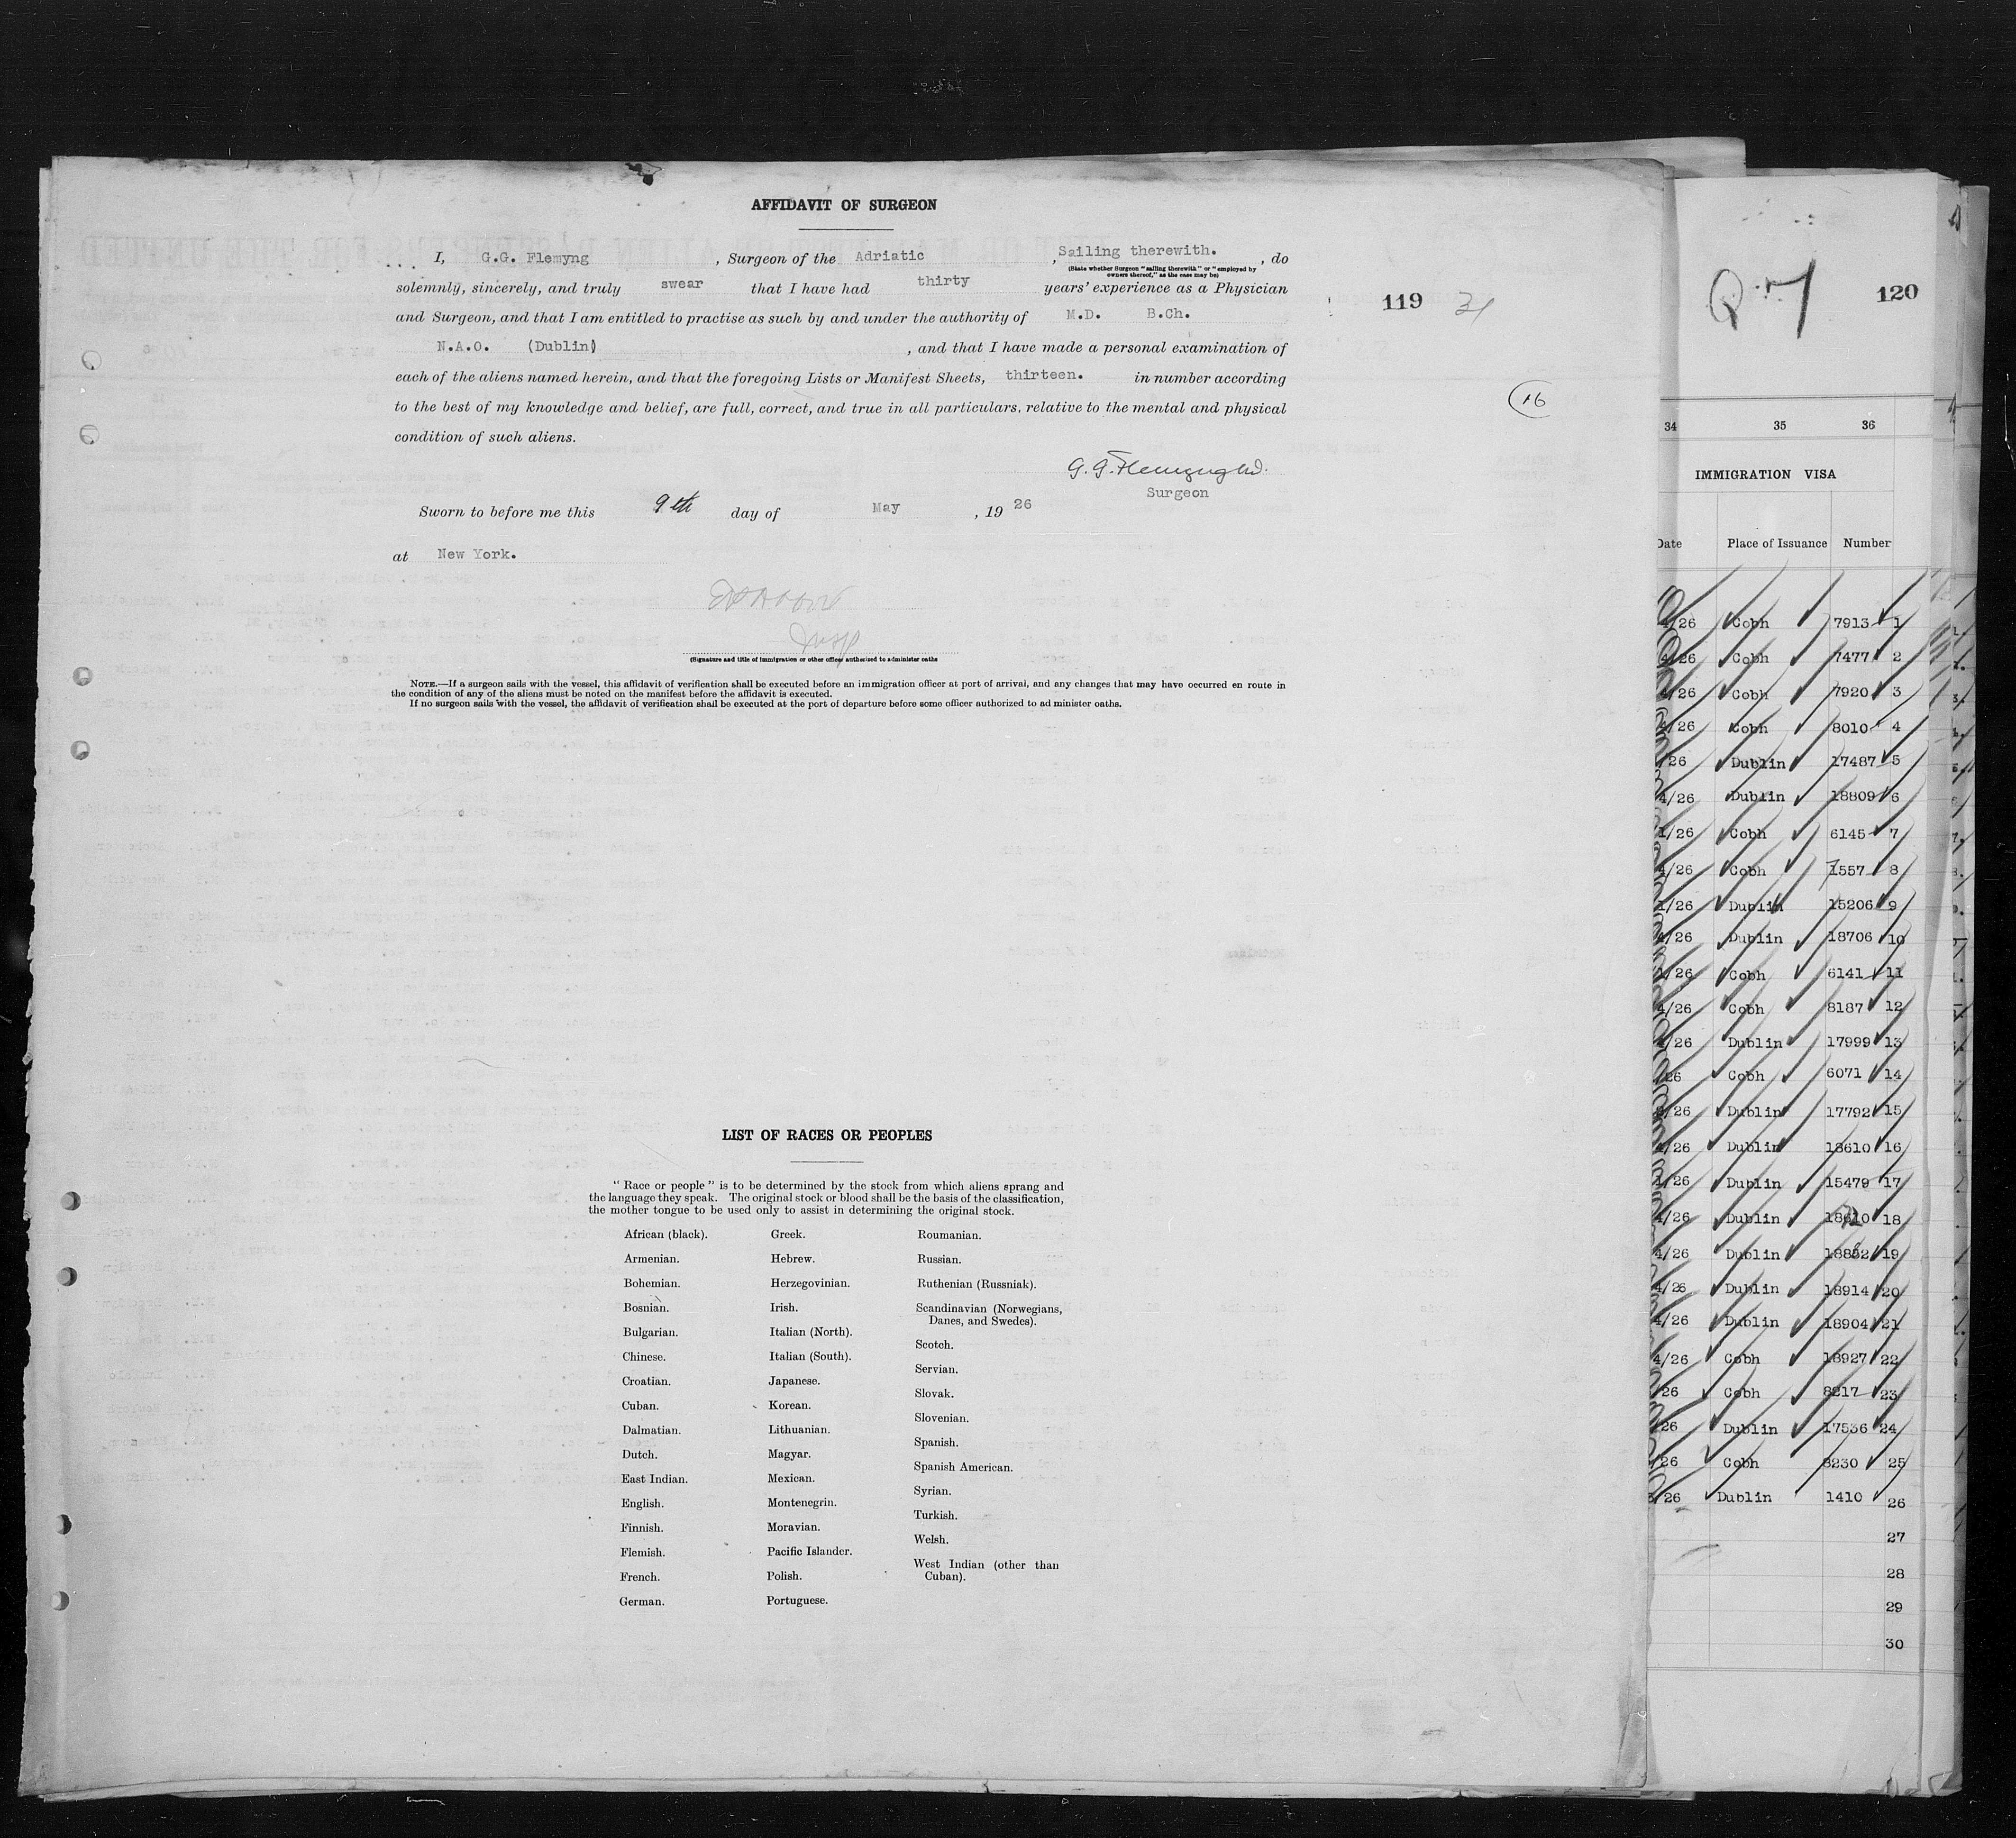 AFFIDAVIT OF SURGEON
I, G.G. Flemyng , Surgeon of the Adriatic , Sailing therewith. , do
(State whether Surgeon "sailing therewith" or "employed by
owners thereof," as the case may be)
solemnly, sincerely, and truly swear that I have had thirty years' experience as a Physician
and Surgeon, and that I am entitled to practise as such by and under the authority of M.D. B.Ch.
N.A.O. (Dublin) , and that I have made a personal examination of
each of the aliens named herein, and that the foregoing Lists or Manifest Sheets, thirteen. in number according
to the best of my knowledge and belief, are full, correct, and true in all particulars, relative to the mental and physical
condition of such aliens.
G. G. Flemyng M.D.
Surgeon
Sworn to before me this 9th day of May , 19 26
at New York.
Insp
(Signature and title of immigration or other officer authorized to administer oaths
NOTE.—If a surgeon sails with the vessel, this affidavit of verification shall be executed before an immigration officer at port of arrival, and any changes that may have occurred en route in
the condition of any of the aliens must be noted on the manifest before the affidavit is executed.
If no surgeon sails with the vessel, the affidavit of verification shall be executed at the port of departure before some officer authorized to ad minister oaths.
119 31
16
LIST OF RACES OR PEOPLES
" Race or people " is to be determined by the stock from which aliens sprang and
the language they speak. The original stock or blood shall be the basis of the classification,
the mother tongue to be used only to assist in determining the original stock.
African (black).
Armenian.
Bohemian.
Bosnian.
Bulgarian.
Chinese.
Croatian.
Cuban.
Dalmatian.
Dutch.
East Indian.
English.
Finnish.
Flemish.
French.
German.
Greek.
Hebrew.
Herzegovinian.
Irish.
Italian (North).
Italian (South).
Japanese.
Korean.
Lithuanian.
Magyar.
Mexican.
Montenegrin.
Moravian.
Pacific Islander.
Polish.
Portuguese.
Roumanian.
Russian.
Ruthenian (Russniak).
Scandinavian (Norwegians,
Danes, and Swedes).
Scotch.
Servian.
Slovak.
Slovenian.
Spanish.
Spanish American.
Syrian.
Turkish.
Welsh.
West Indian (other than
Cuban).
Q 7 120
34 35 36
IMMIGRATION VISA
Date Place of Issuance Number
4/26 Cobh 7913 1
4/26 Cobh 7477 2
4/26 Cobh 7920 3
/26 Cobh 8010 4
26 Dublin 17487 5
4/26 Dublin 18809 6
1/26 Cobh 6145 7
4/26 Cobh 7557 8
1/26 Dublin 15206 9
4/26 Dublin 18706 10
/26 Cobh 6141 11
4/26 Cobh 8187 12
/26 Dublin 17999 13
26 Cobh 6071 14
/26 Dublin 17792 15
/26 Dublin 18610 16
/26 Dublin 15479 17
4/26 Dublin 18
4/26 Dublin 19
4/26 Dublin 18914 20
4/26 Dublin 18904 21
4/26 Cobh 18927 22
26 Cobh 8217 23
26 Dublin 17536 24
26 Cobh 8230 25
/26 Dublin 1410 26
27
28
29
30